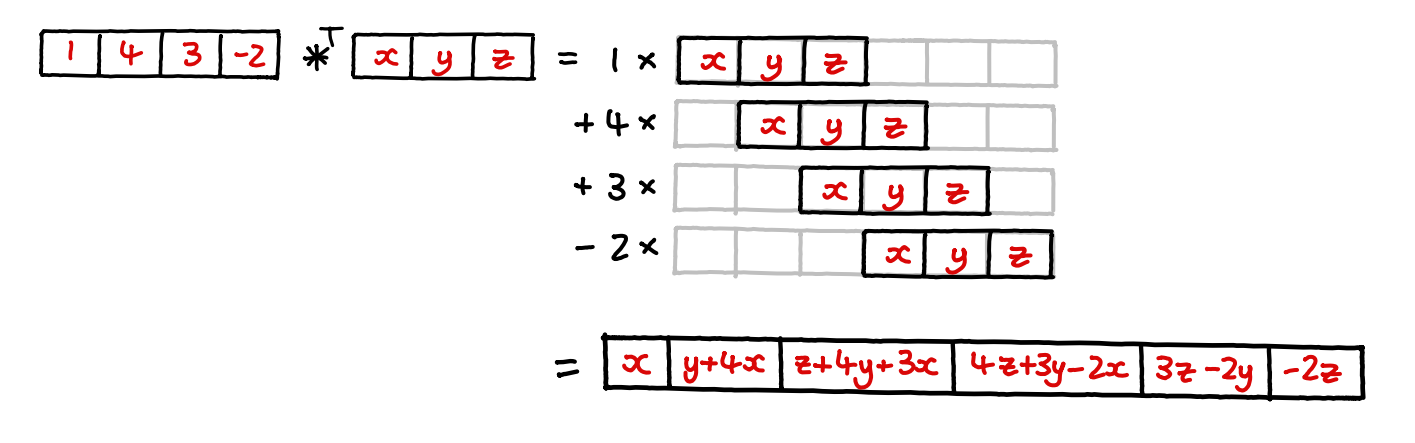 1 4 3 -2 *ᵀ x y z = 1 × x y z
+ 4 × x y z
+ 3 × x y z
- 2 × x y z
= x y+4x z+4y+3x 4z+3y-2x 3z-2y -2z